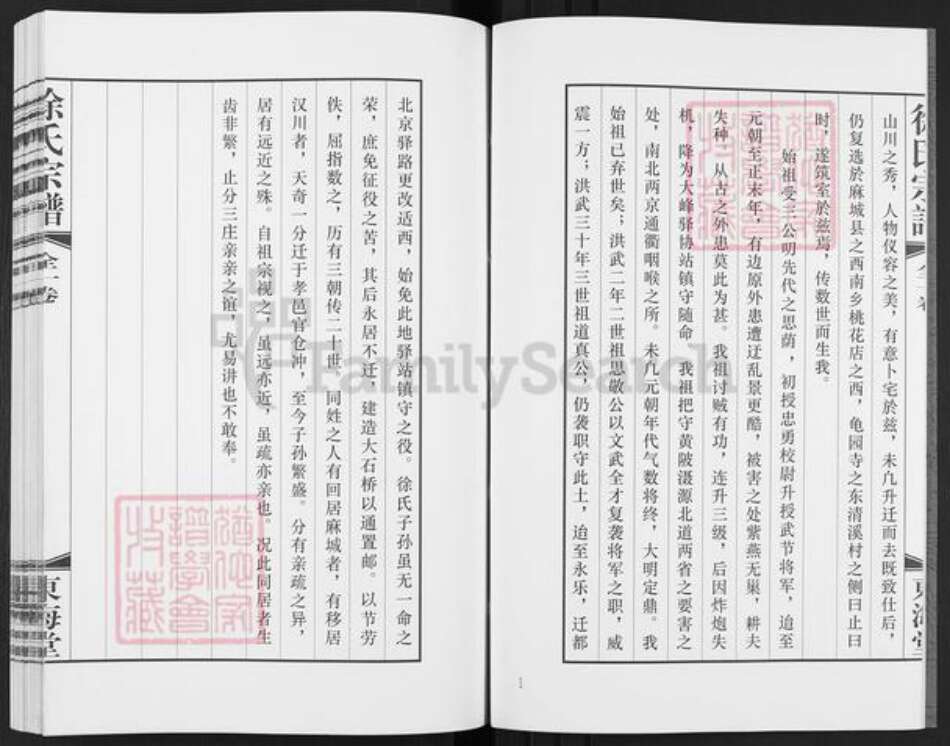 山川之秀，人物仪容之美，有意卜宅於兹，未几升迁而去既致仕后，
仍复选於麻城县之西南乡桃花店之西，龟园寺之东清溪村之侧日止日
时，遂筑室於兹焉，传数世而生我。
始祖受三公明先代之思荫，初授忠勇校尉升授武节将军，迨至
元朝至正末年，有边原外患遭迂乱景更酷，被害之处紫燕无巢，耕夫
失种，从古之外患莫此为甚。我祖讨贼有功，连升三级，后因炸炮失
机，降为大峰驿协站镇守随命，我祖把守黄陂滠源北道两省之要害之
处，南北两京通衢咽喉之所。未几元朝年代气数将终，大明定鼎。我
始祖已弃世矣；洪武二年二世祖思敬公以文武全才复袭将军之职，威
震一方；洪武三十年三世祖道真公，仍袭职守此土，迨至永乐，迁都
徐氏宗谱
全一卷
東海堂
北京驿路更改适西，始免此地驿站镇守之役。徐氏子孙虽无一命之
荣，庶免征役之苦，其后永居不迁，建造大石桥以通置邮。以节劳
佚，屈指数之，历有三朝传二十世。同姓之人有回居麻城者，有移居
汉川者，天奇一分迁于孝邑官仓冲，至今子孙繁盛。分有亲疏之异，
居有远近之殊。自祖宗视之，虽远亦近，虽疏亦亲也。况此同居者生
齿非繁，止分三庄亲亲之谊，尤易讲也不敢奉。
徐氏宗譜
全一卷
東海堂
FamilySearch